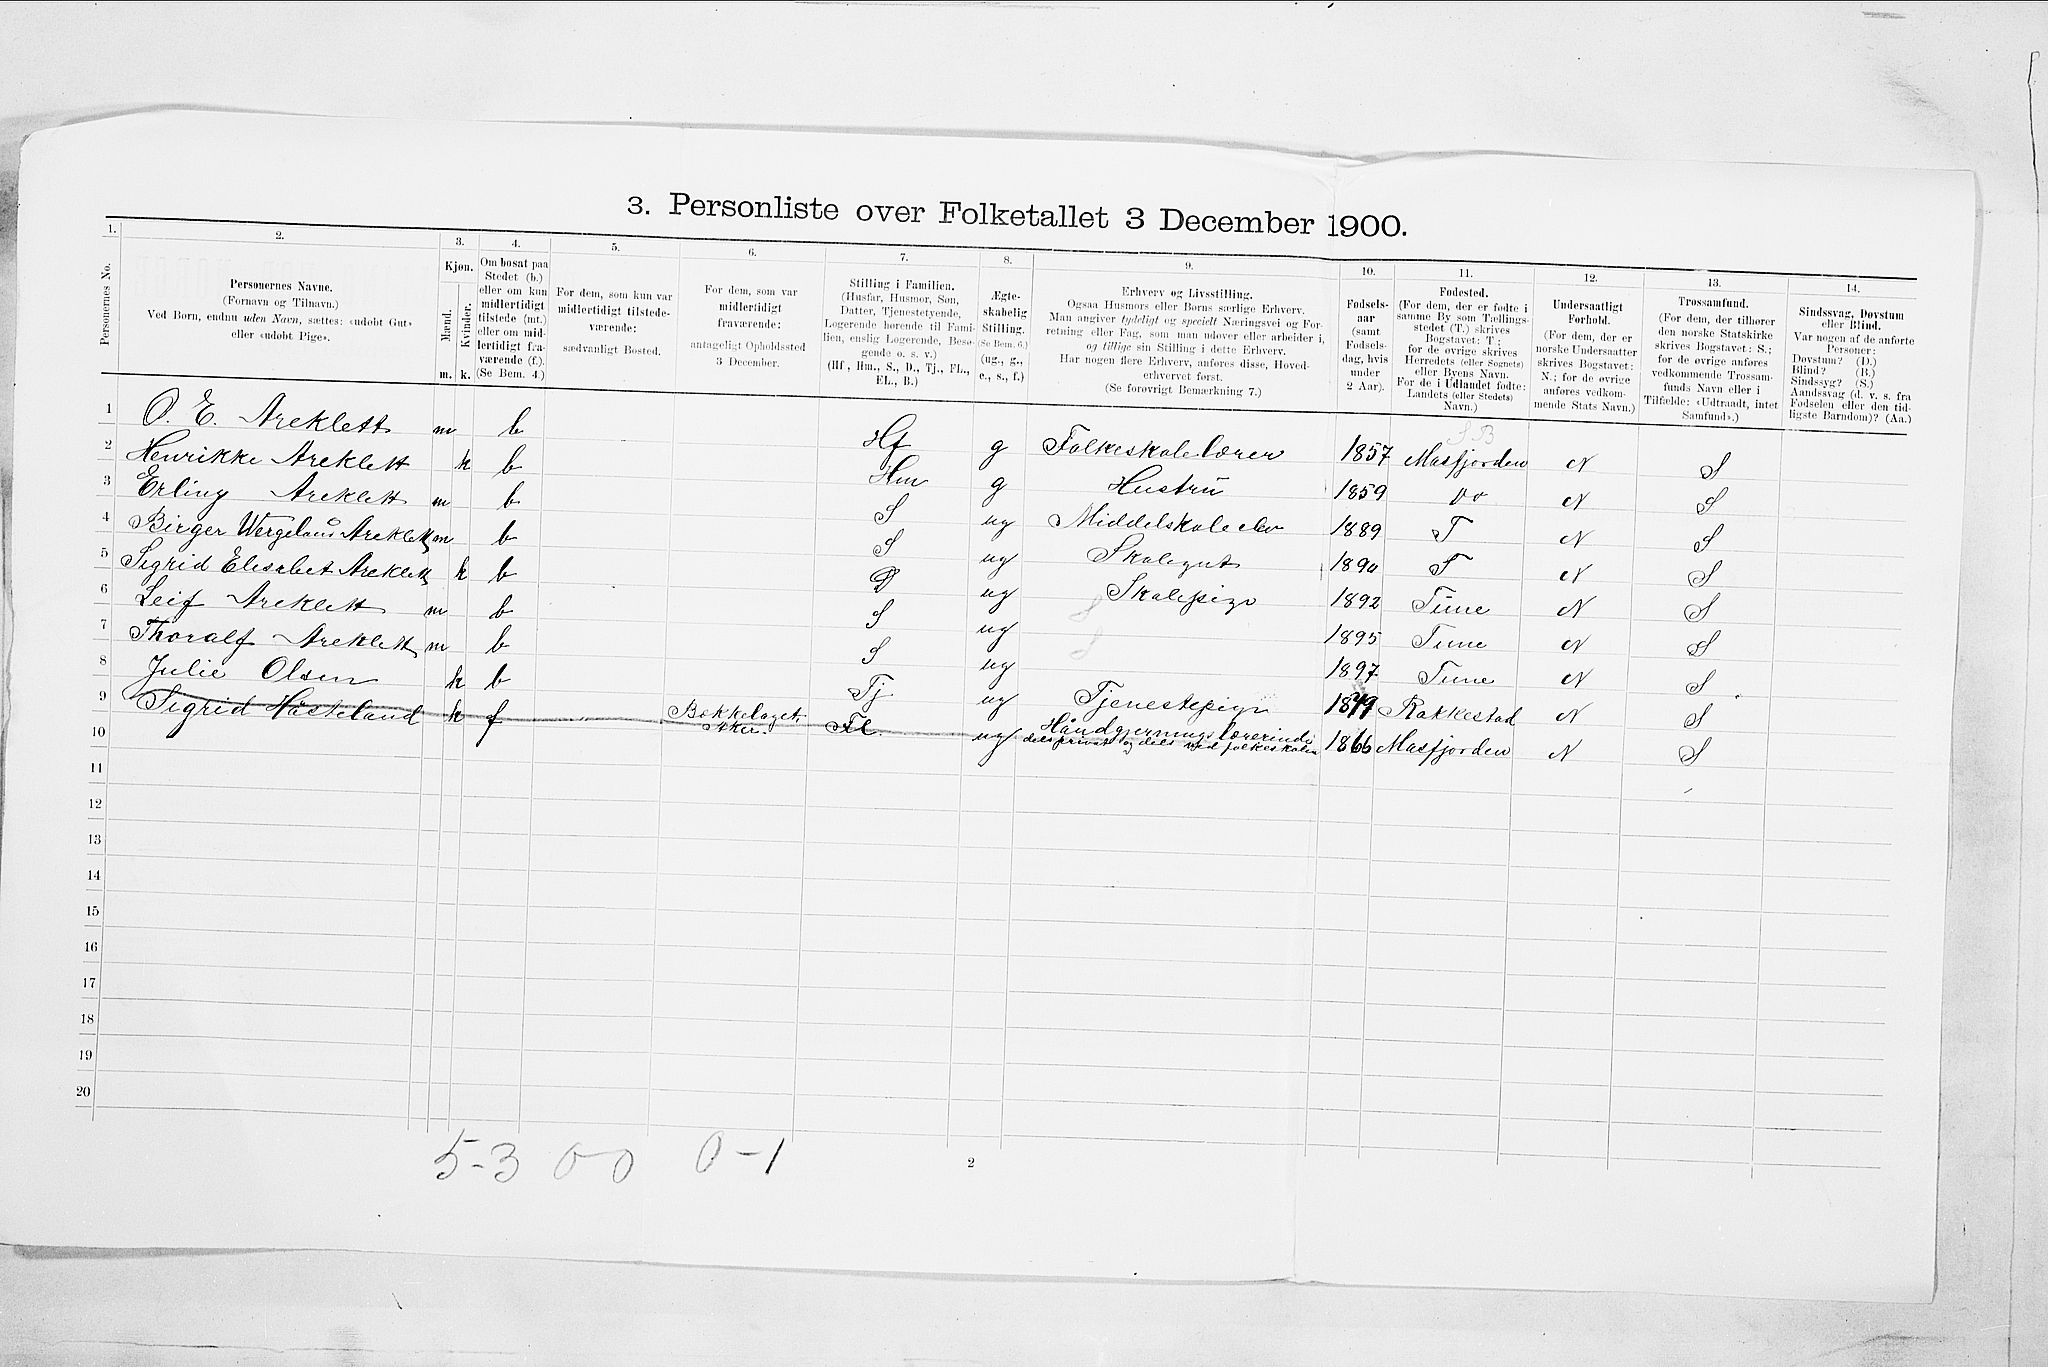 3. Personliste over Folketallet 3 December 1900.
1. 2. 3. 4. 5. 6. 7. 8. 9. 10. 11. 12. 13. 14.
Personernes No.
Personernes Navne.
(Fornavn og Tilnavn.)
Ved Børn, endnu uden Navn, sættes: «udøbt Gut»
eller «udøbt Pige».
Kjøn.
Mænd.
Kvinder.
m. k.
Om bosat paa
Stedet (b.)
eller om kun
midlertidigt
tilstede (mt.)
eller om mid-
lertidigt fra-
værende (f.).
(Se Bem. 4.)
For dem, som kun var
midlertidigt tilstede-
værende:
sædvanligt Bosted.
For dem, som var
midlertidigt
fraværende:
antageligt Opholdssted
3 December.
Stilling i Familien.
(Husfar, Husmor, Søn,
Datter, Tjenestetyende,
Logerende hørende til Fami-
lien, enslig Logerende, Besø-
gende o. s. v.)
(Hf., Hm., S., D., Tj., FL.,
EL., B.)
Ægte-
skabelig
Stilling.
(Se Bem. 6.)
(ug., g.,
e., s., f.)
Erhverv og Livsstilling.
Ogsaa Husmors eller Børns særlige Erhverv.
Man angiver tydeligt og specielt Næringsvei og For-
retning eller Fag, som man udøver eller arbeider i,
og tillige sin Stilling i dette Erhverv.
Har nogen flere Erhverv, anføres disse, Hoved-
erhvervet først.
(Se forøvrigt Bemærkning 7.)
Fødsels-
aar
(samt
Fødsels-
dag, hvis
under
2 Aar).
Fødested.
(For dem, der er fødte i
samme By som Tællings-
stedet (T.) skrives
Bogstavet: T.;
for de øvrige skrives
Herredets (eller Sognets)
eller Byens Navn.
For de i Udlandet fødte:
Landets (eller Stedets)
Navn.)
Undersaatligt
Forhold.
(For dem, der er
norske Undersaatter
skrives Bogstavet:
N.; for de øvrige
anføres vedkom-
mende Stats Navn.)
Trossamfund.
(For dem, der tilhører
den norske Statskirke
skrives Bogstavet: S.;
for de øvrige anføres
vedkommende Trossam-
funds Navn eller i
Tilfælde: «Udtraadt, intet
Samfund».)
Sindssvag, Døvstum
eller Blind.
Var nogen af de anførte
Personer:
Døvstum? (D.)
Blind? (B.)
Sindssyg? (S.)
Aandssvag (d. v. s. fra
Fødselen eller den tid-
ligste Barndom)? (Aa.)
S B
1 O. E. Areklett m b Hf g Folkeskolelærer 1857 Masfjorden N S
2 Henrikke Areklett k b Hm g Hustru 1859 do N S
3 Erling Areklett m b S ug Middelskoleelev 1889 T N S
4 Birger Wergeland Areklett m b S ug Skolegut 1890 T N S
5 Sigrid Elisabet Areklett k b D ug Skolepige 1892 Tune N S
6 Leif Areklett m b S ug S 1895 Tune N S
7 Thoralf Areklett m b S ug S 1897 Tune N S
8 Julie Olsen k b Tj ug Tjenestepige Rakkestad N S
9 Sigrid Håsteland k f Bækkelaget Fl. ug Håndgjerningslærerinde 1866 Masfjorden N S
Aker. dels privat og dels ved folkeskolen
10
11
12
13
14
15
16
17
18
19
20
5-3 0-0 0-1
2